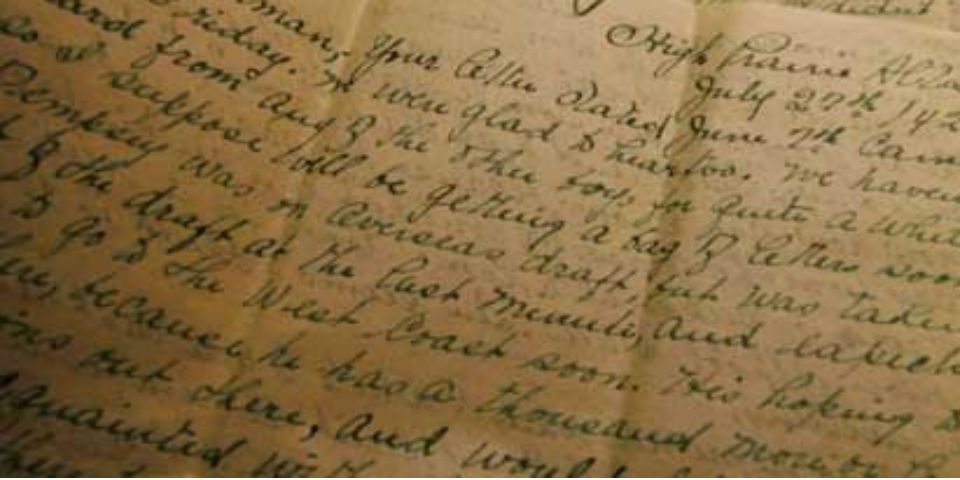 High Prairie Alb
July 27th 142
man, Your letter dated June 7th Cam
riday. We were glad to hear too. We haven
ard from any of the other boys for quite a whil
so I suppose will be getting a bag of letters soon
Dempsey was on overseas draft, but was taken
the draft at the last minute, and expects
to go to the West Coast soon. His hoping
because he has a thousand more or
ons out there, and would
quainted with